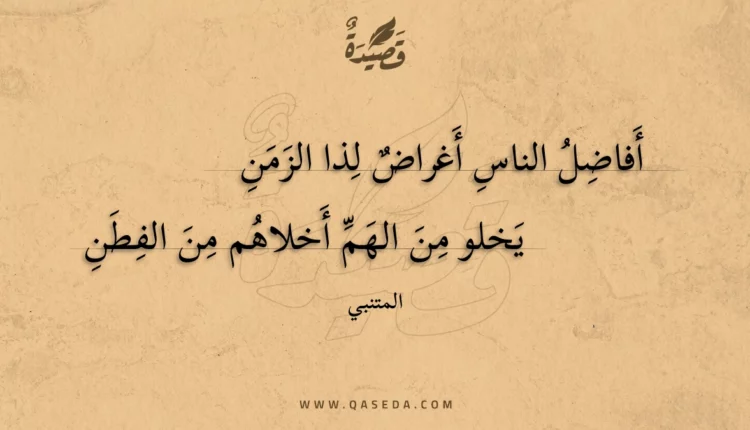 قَصِيدَةٌ
أَفاضِلُ الناسِ أَغراضٌ لِذا الزَمَنِ
يَخلو مِنَ الهَمِّ أَخلاهُم مِنَ الفِطَنِ
المتنبي
WWW.QASEDA.COM